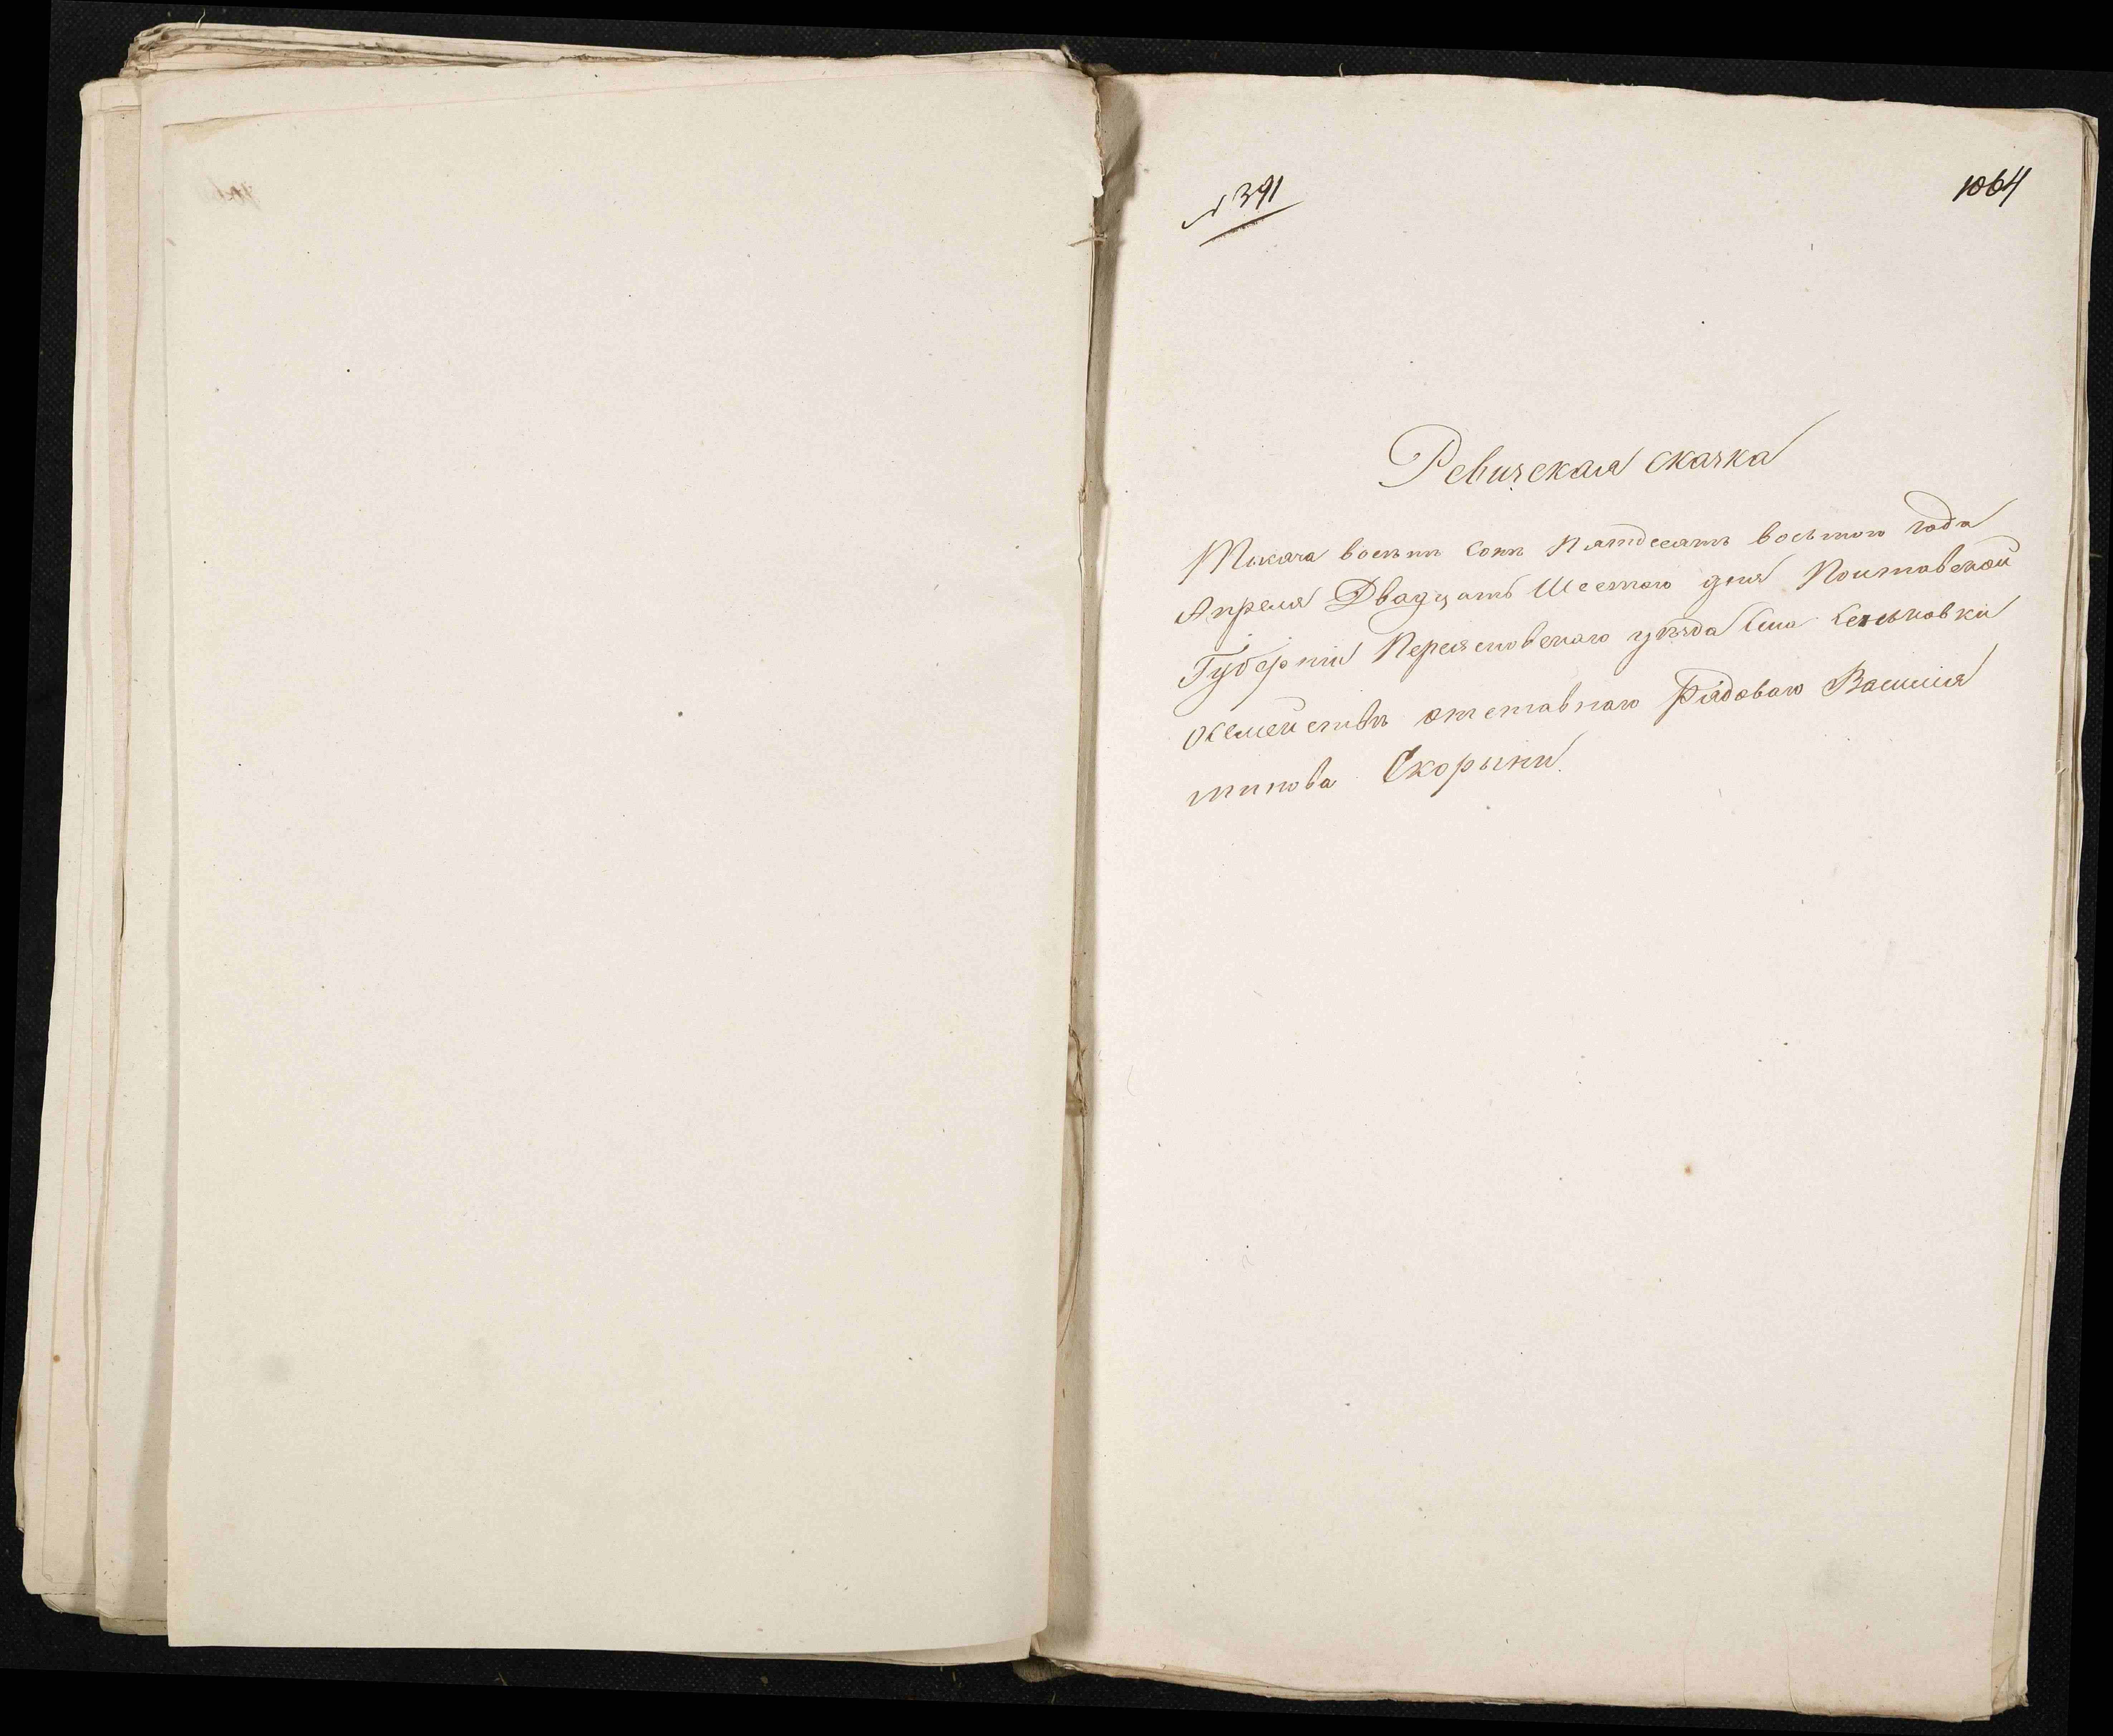 № 391
1064
Ревизская сказка
Тысяча восемъ сотъ Пятдесятъ восьмого года
Апреля Двадцать Шестого дня Полтавской
Губерніи Переясловского уезда Села Сеньковки
О семействе отставного Рядового Василія
Скорыни